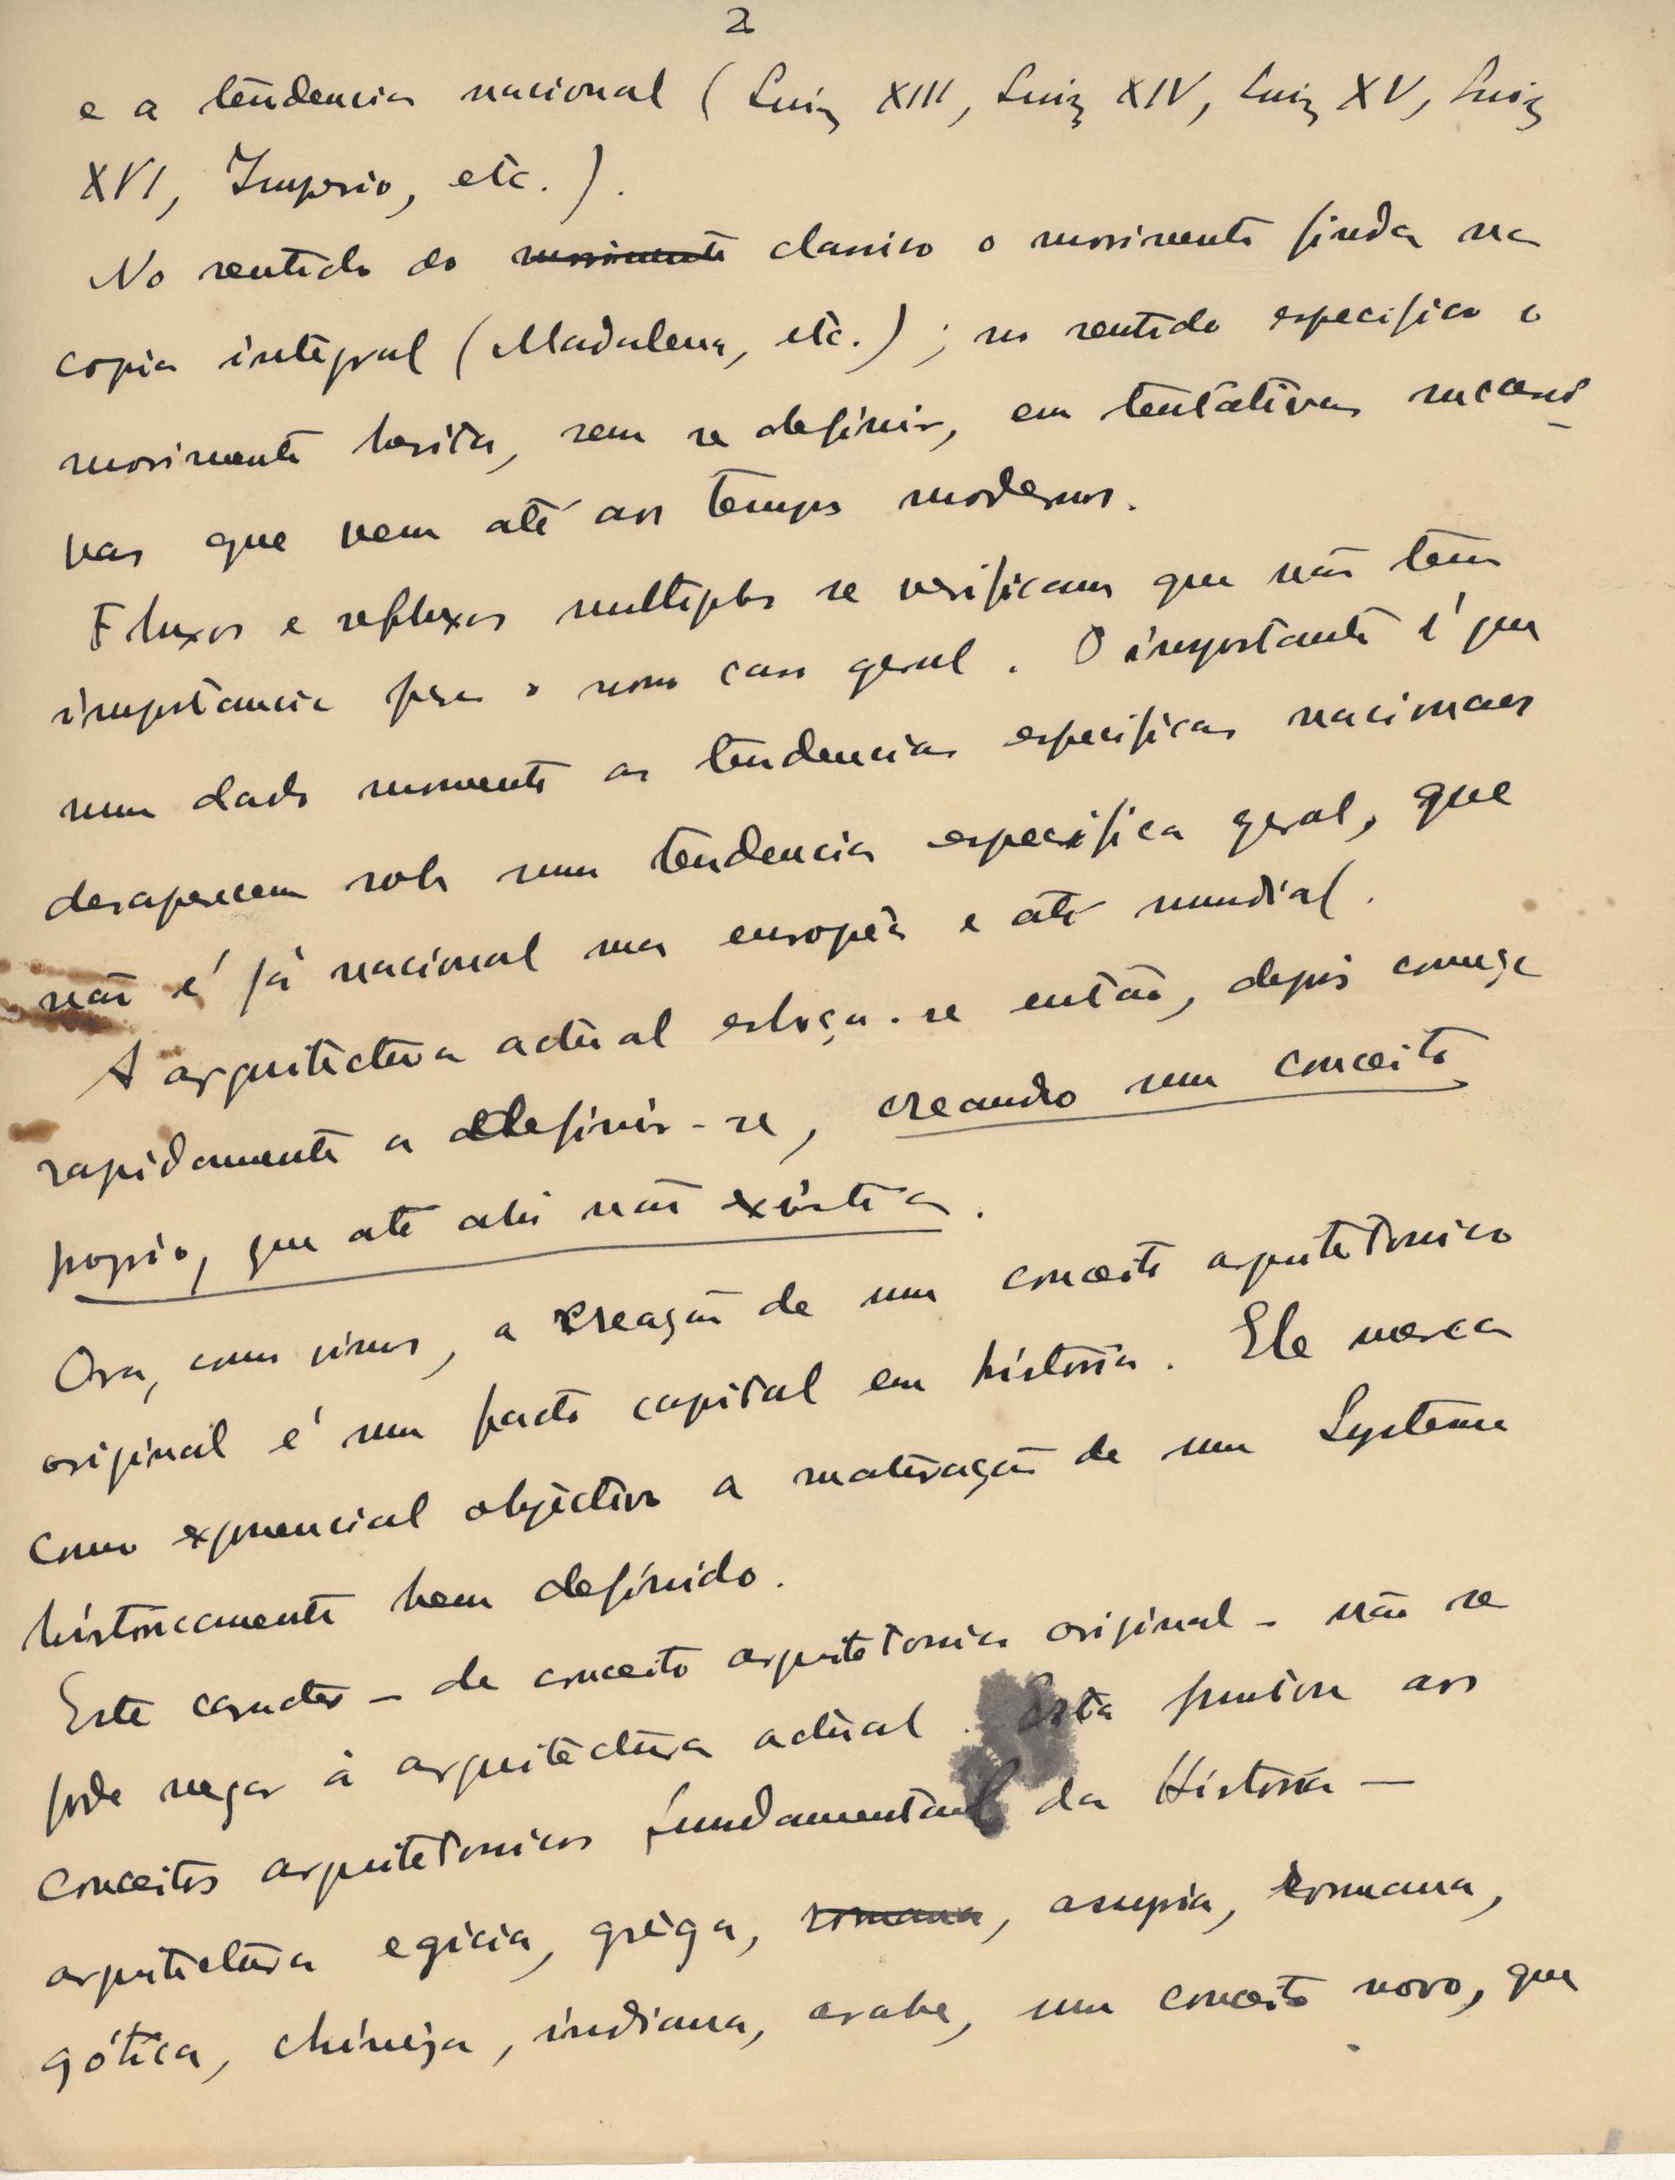 2
e a tendencia nacional (Luiz XIII, Luiz XIV, Luiz XV, Luiz
XVI, Imperio, etc.).
No sentido do movimento classico o movimento finda na
copia integral (Madalena, etc.); no sentido especifico o
movimento hesita, sem se definir, em tentativas sucessi-
vas que vem até aos tempos modernos.
Fluxos e refluxos multiplos se verificam que não têm
importancia para o nosso caso geral. O importante é que
num dado momento as tendencias especificas nacionaes
desaparecem sob uma tendencia especifica geral, que
não é já nacional mas européa e até mundial.
A arquitectura actual esboça-se então, depois começa
rapidamente a definir-se, creando um conceito
proprio, que até ahi não existia.
Ora, como vimos, a creação de um conceito arquitetonico
original é um facto capital em história. Ele marca
como exponencial objectivo a maturação de um Systema
históricamente bem definido.
Este caracter - de conceito arquitetonico original - não se
pode negar á arquitectura actual. Esta juntou aos
conceitos arquitetonicos fundamentaes da História —
arquitectura egicia, grega, romana, assyria, romana,
gótica, chineza, indiana, arabe, um conceito novo, que